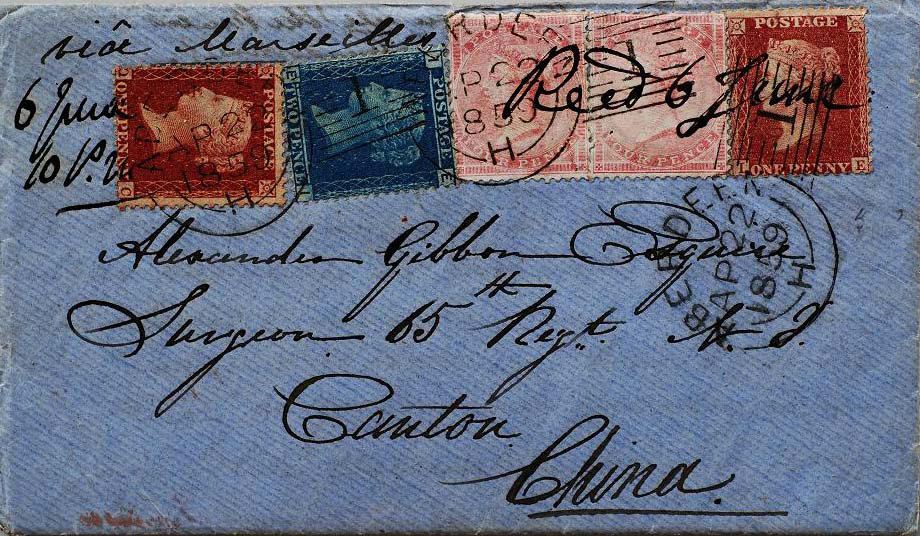 viâ Marseilles
6 June
10 P.M
Recd 6 June
POSTAGE
ONE PENNY
POSTAGE
TWO PENCE
POSTAGE
ONE PENNY
T E
ABERDEEN
AP 22
1859
H
1
Alexander Gibbon Esquire
Surgeon 65th Regt. N. I.
Canton
China.